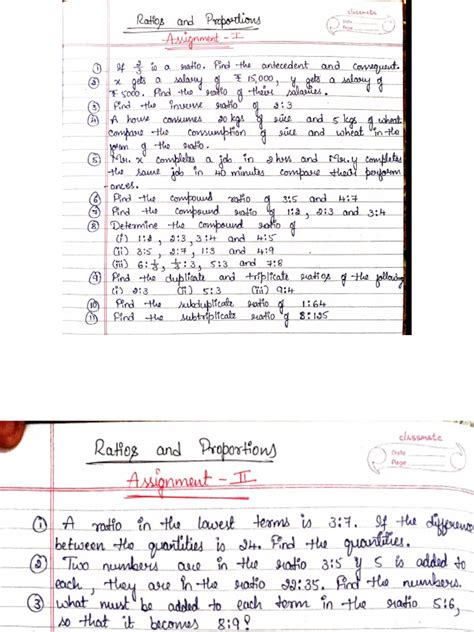 classmate
Date
Page
Ratios and Proportions
Assignment - I
① If 2/3 is a ratio. Find the antecedent and consequent.
② x gets a salary of ₹ 15,000, y gets a salary of
₹ 5000. Find the ratio of their salaries.
③ Find the inverse ratio of 2:3
④ A house consumes 20 kgs of rice and 5 kgs of wheat
compare the consumption of rice and wheat in the
form of the ratio.
⑤ Mr. x completes a job in 2 hrs and Mr. y completes
the same job in 40 minutes compare their perform
ances.
⑥ Find the compound ratio of 3:5 and 4:7
⑦ Find the compound ratio of 1:2, 2:3 and 3:4
⑧ Determine the compound ratio of
(i) 1:2, 2:3, 3:4 and 4:5
(ii) 3:5, 2:7, 1:3 and 4:9
(iii) 5:3 and 7:8
⑨ Find the duplicate and triplicate ratios of the following
(i) 2:3 (ii) 5:3 (iii) 9:4
⑩ Find the subduplicate ratio of 1:64
⑪ Find the subtriplicate ratio of 8:125
classmate
Date
Page
Ratios and Proportions
Assignment - II
① A ratio in the lowest terms is 3:7. If the difference
between the quantities is 24. Find the quantities.
② Two numbers are in the ratio 3:5 if 5 is added to
each, they are in the ratio 22:35. Find the numbers.
③ what must be added to each term in the ratio 5:6,
so that it becomes 8:9?